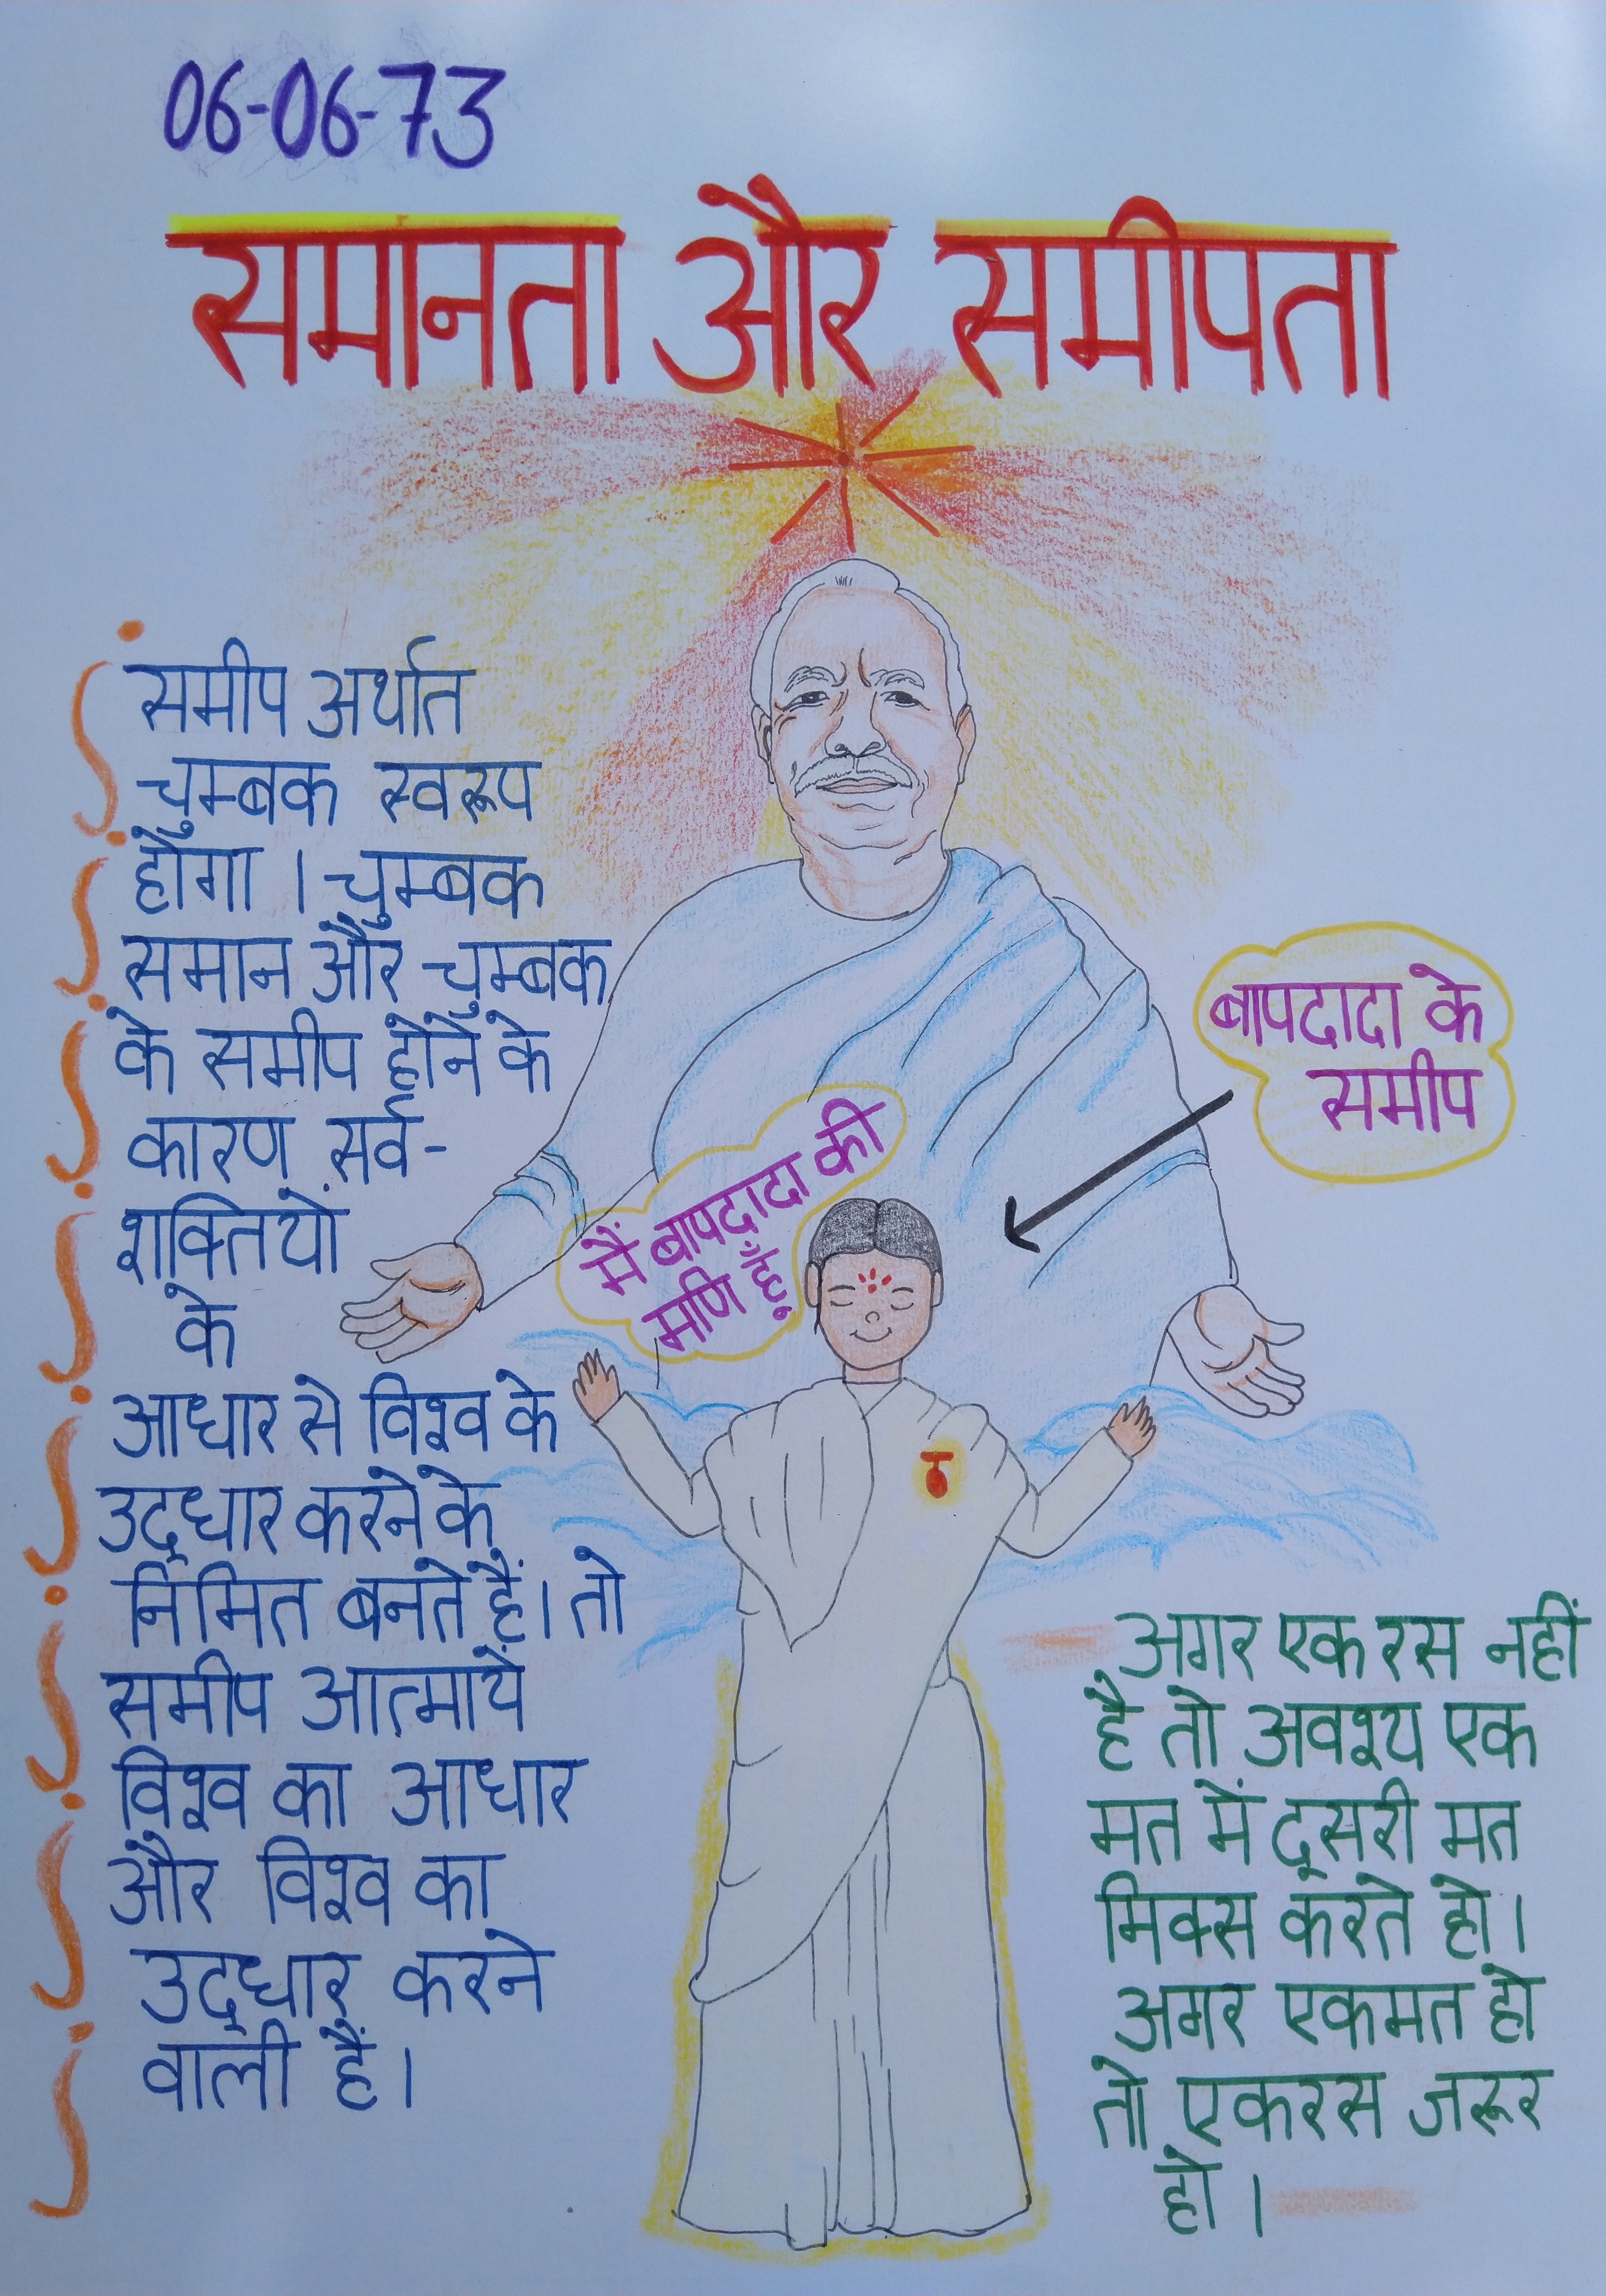 06-06-73
समानता और समीपता
समीप अर्थात
चुम्बक स्वरूप
होगा । चुम्बक
समान और चुम्बक
के समीप होने के
कारण सर्व-
शक्तियों
के
आधार से विश्व के
उद्धार करने के
निमित बनते हैं। तो
समीप आत्मायें
विश्व का आधार
और विश्व का
उद्धार करने
वाली हैं।
बापदादा के
समीप
मैं बापदादा की
मणि हूँ
अगर एक रस नहीं
है तो अवश्य एक
मत में दूसरी मत
मिक्स करते हो।
अगर एकमत हो
तो एकरस जरूर
हो ।